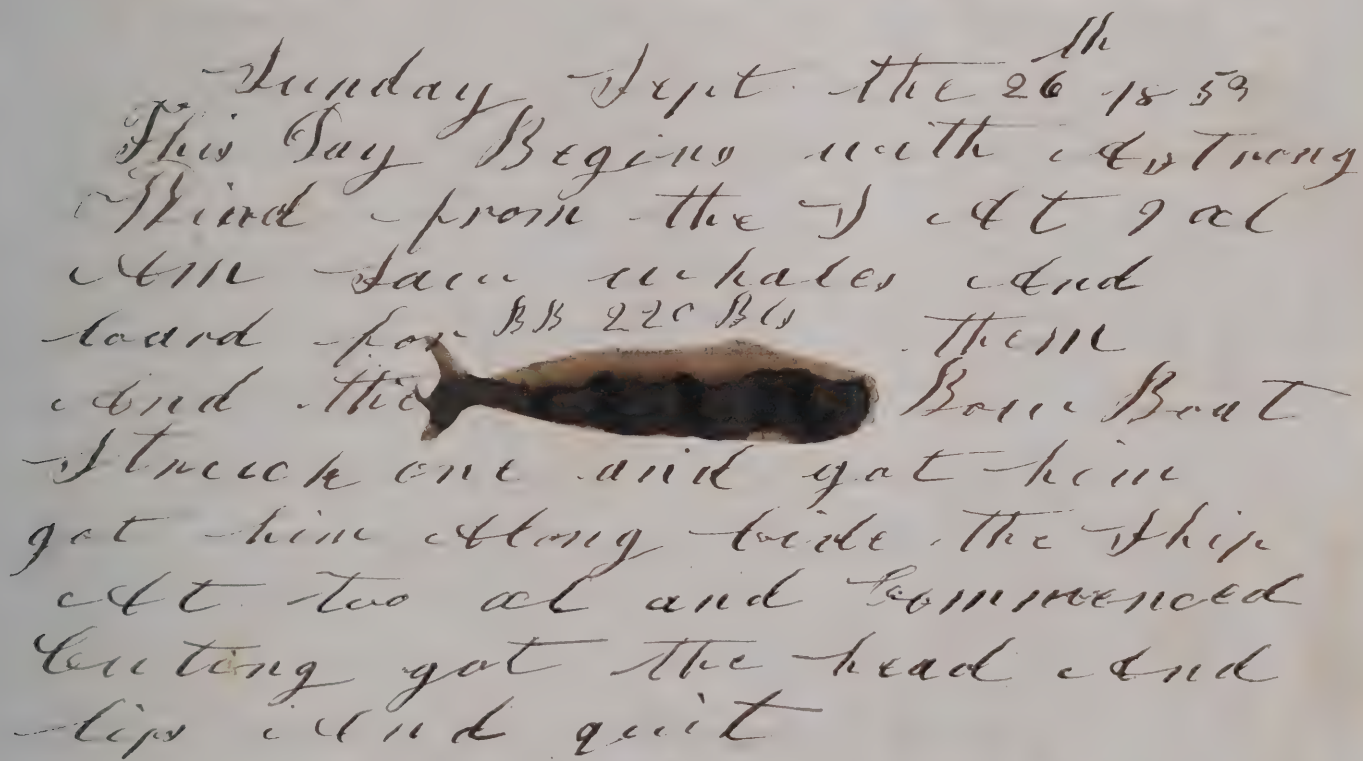 Sunday Sept the 26th 1859
This Day Begins with A strong
Wind from the S At 9 ocl
AM Saw whales And
loard for BB 220 Bls them
And the Bow Boat
Struck one and got him
got him Along side the Ship
At too ocl and Commenced
Cuting got the head And
lips And quit